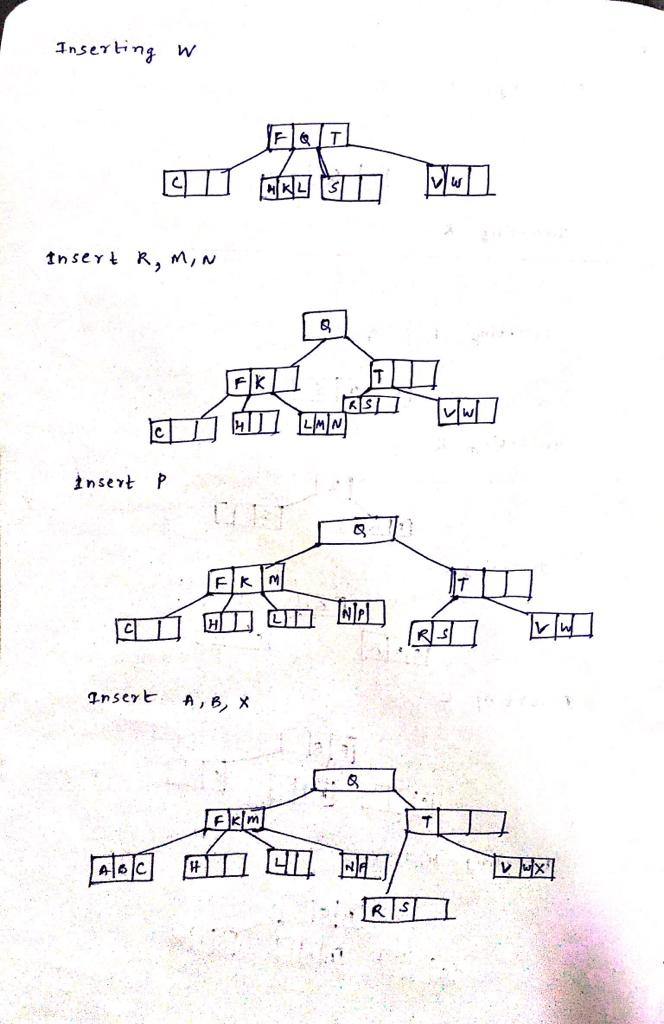 Inserting W
F Q T
C H K L S V W
Insert R, M, N
Q
F K T
C H L M N R S V W
Insert P
Q
F K M T
C H L N P R S V W
Insert A, B, X
Q
F K M T
A B C H L N P V W X
R S